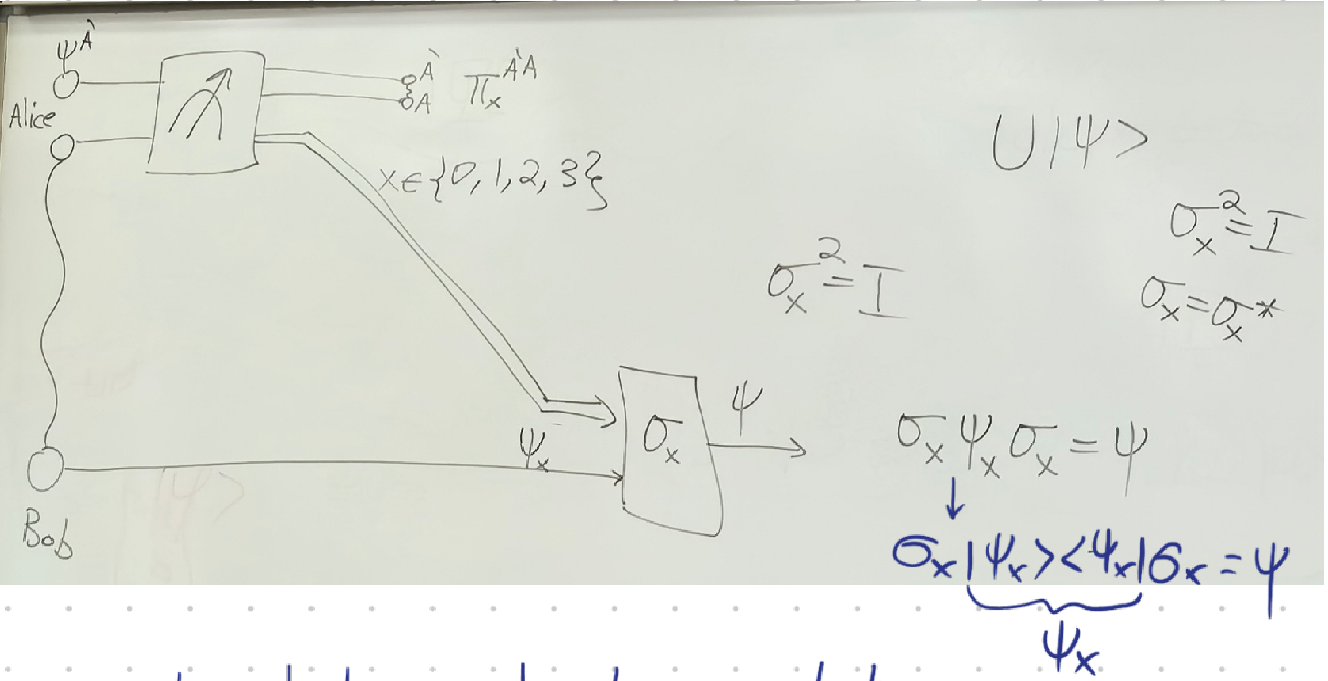 ψ^À
Alice
À
A
π_x^ÀA
x∈{0,1,2,3}
U|ψ>
σ_x^2=I
σ_x^2=I
σ_x=σ_x^*
ψ_x
σ_x
ψ
σ_x ψ_x σ_x=ψ
Bob
↓
σ_x|ψ_x><ψ_x|σ_x=ψ
ψ_x